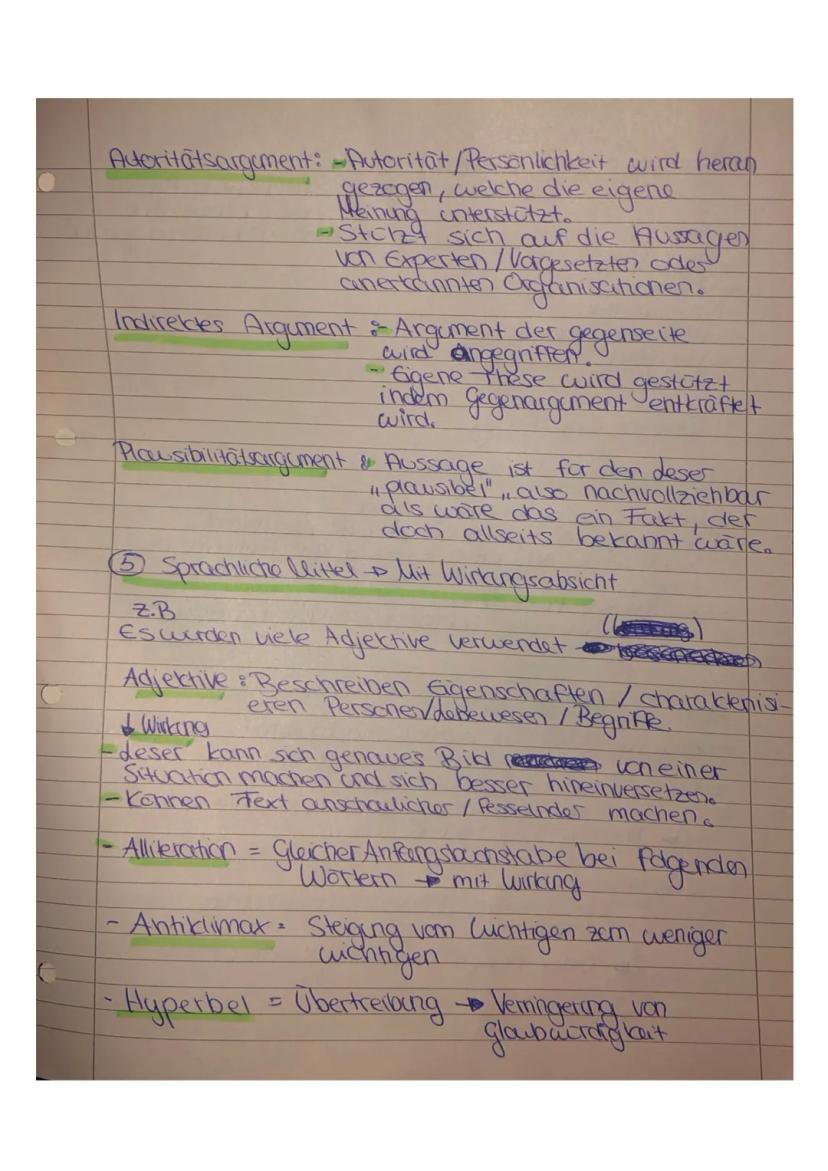 Autoritätsargument: - Autorität/Persönlichkeit wird heran
gezogen, welche die eigene
Meinung unterstützt.
- Stützt sich auf die Aussagen
von Experten/Vorgesetzten oder
anerkannten Organisationen.
Indirektes Argument :- Argument der gegenseite
wird angegriffen.
- Eigene These wird gestützt
indem Gegenargument entkräftet
wird.
Plausibilitätsargument : Aussage ist für den Leser
"plausibel", also nachvollziehbar
als wäre das ein Fakt, der
doch allseits bekannt wäre.
⑤ Sprachliche Mittel → Mit Wirkungsabsicht
z.B
Es wurden viele Adjektive verwendet →
Adjektive : Beschreiben Eigenschaften / charakterisi-
eren Personen/Lebewesen / Begriffe.
↓ Wirkung
- Leser kann sich genaues Bild von einer
Situation machen und sich besser hineinversetzen.
- Können Text anschaulicher / fesselnder machen.
- Alliteration = Gleicher Anfangsbuchstabe bei folgenden
Wörtern → mit Wirkung
- Antiklimax = Steigung vom Wichtigen zum weniger
wichtigen
- Hyperbel = Übertreibung → Verringerung von
Glaubwürdigkeit